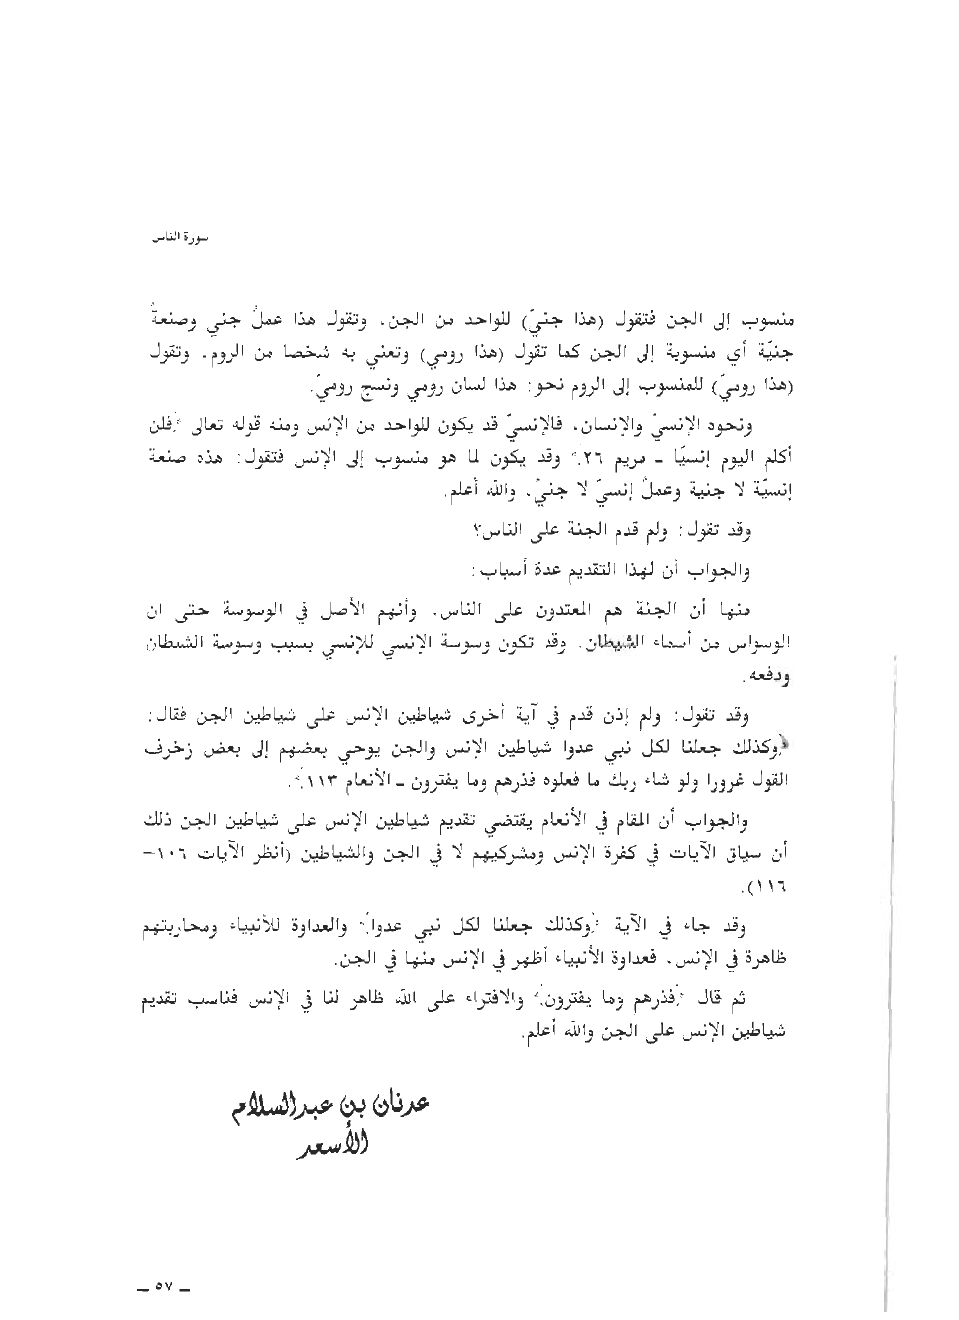 سورة الناس
منسوب إلى الجن فتقول (هذا جنيّ) للواحد من الجن، وتقول هذا عملٌ جني وصنعةٌ
جنيّة أي منسوبة إلى الجن كما تقول (هذا رومي) وتعني به شخصا من الروم، وتقول
(هذا روميّ) للمنسوب إلى الروم نحو: هذا لسان رومي ونسج روميّ.
ونحوه الإنسيّ والإنسان، فالإنسيّ قد يكون للواحد من الإنس ومنه قوله تعالى ﴿فلن
أكلم اليوم إنسيّا ـ مريم ٢٦﴾ وقد يكون لما هو منسوب إلى الإنس فتقول: هذه صنعة
إنسيّة لا جنية وعملٌ إنسيّ لا جنيّ، والله أعلم.
وقد تقول: ولم قدم الجنة على الناس؟
والجواب أن لهذا التقديم عدة أسباب:
منها أن الجنة هم المعتدون على الناس، وأنهم الأصل في الوسوسة حتى ان
الوسواس من أسماء الشيطان، وقد تكون وسوسة الإنسي للإنسي بسبب وسوسة الشيطان
ودفعه.
وقد تقول: ولم إذن قدم في آية أخرى شياطين الإنس على شياطين الجن فقال:
﴿وكذلك جعلنا لكل نبي عدوا شياطين الإنس والجن يوحي بعضهم إلى بعض زخرف
القول غرورا ولو شاء ربك ما فعلوه فذرهم وما يفترون ـ الأنعام ١١٣﴾.
والجواب أن المقام في الأنعام يقتضي تقديم شياطين الإنس على شياطين الجن ذلك
أن سياق الآيات في كفرة الإنس ومشركيهم لا في الجن والشياطين (أنظر الآيات ١٠٦–
١١٦).
وقد جاء في الآية ﴿وكذلك جعلنا لكل نبي عدوا﴾ والعداوة للأنبياء ومحاربتهم
ظاهرة في الإنس، فعداوة الأنبياء أظهر في الإنس منها في الجن.
ثم قال ﴿فذرهم وما يفترون﴾ والافتراء على الله ظاهر لنا في الإنس فناسب تقديم
شياطين الإنس على الجن والله أعلم.
عدنان بن عبدالسلام
الأسعد
ـ ٥٧ ـ